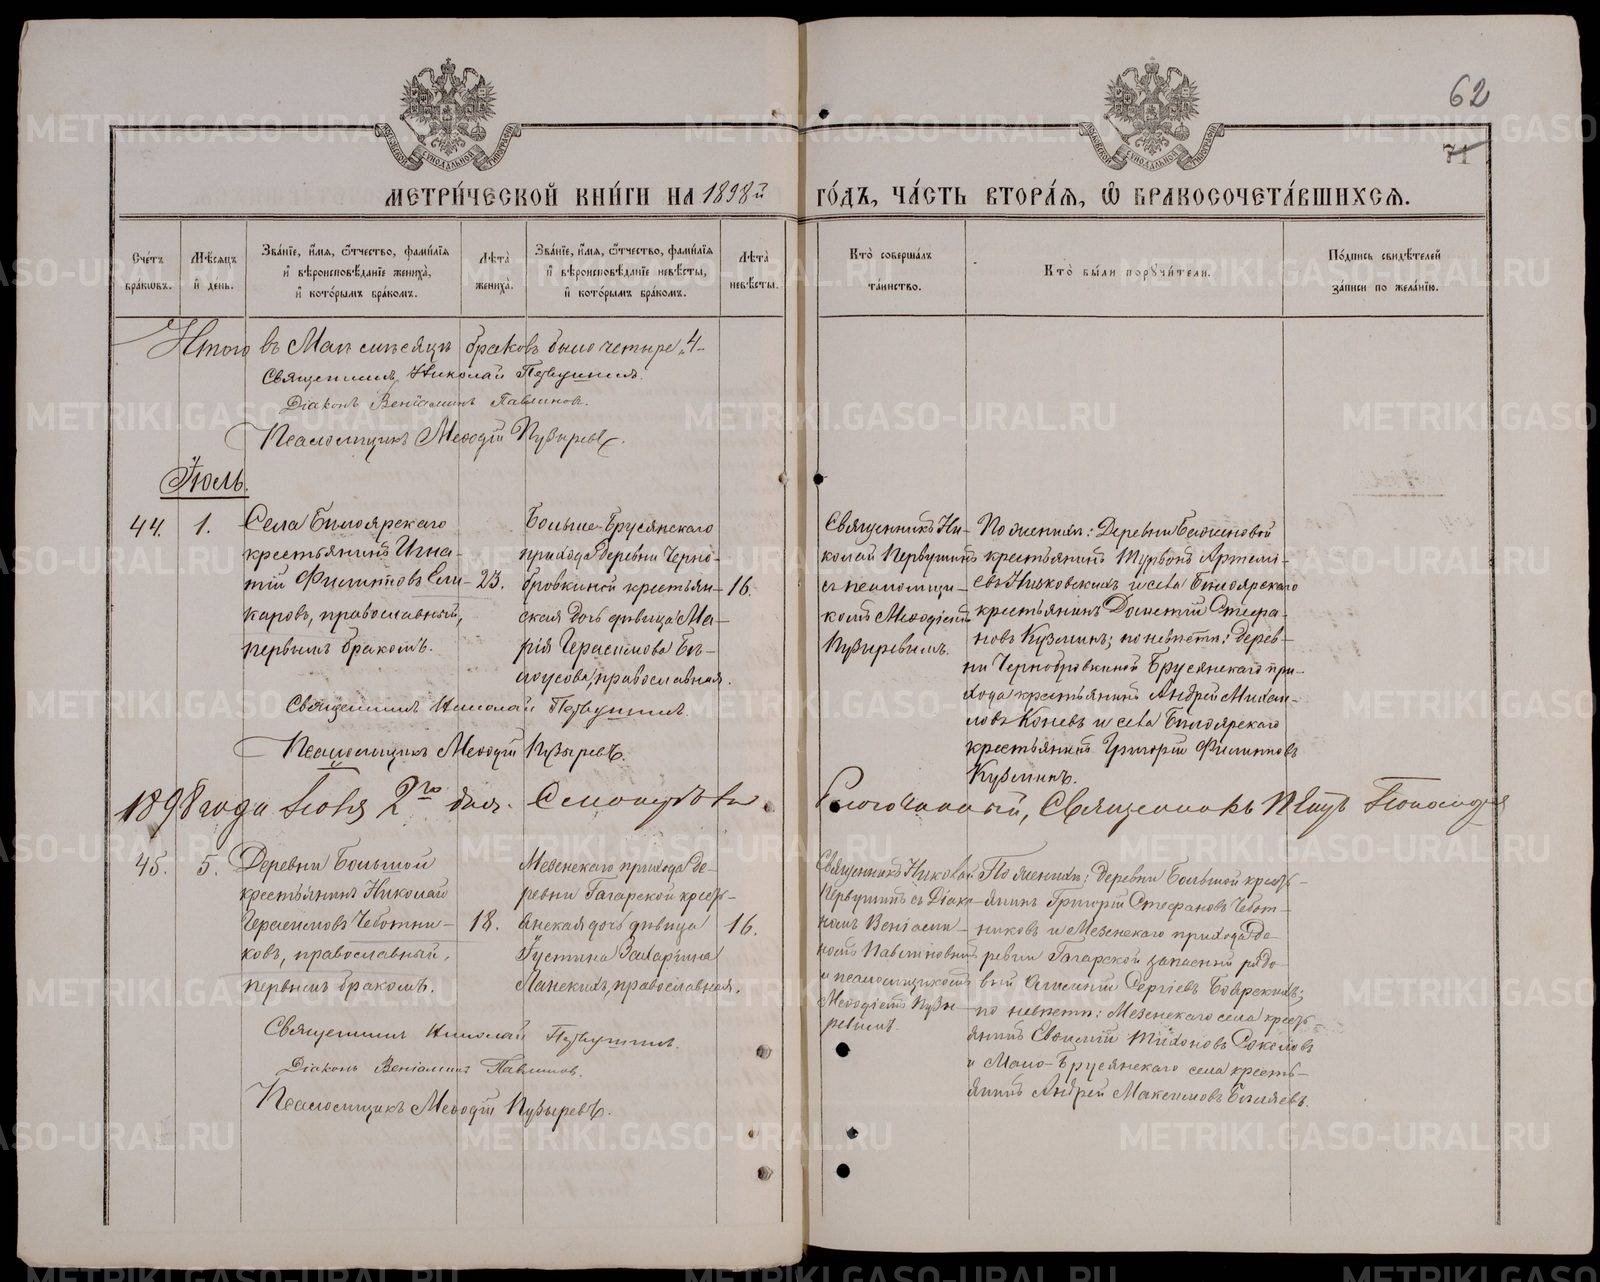 62
71
МЕТРИ́ЧЕСКОЙ КНИ́ГИ НА 1898й ГО́ДЪ, ЧА́СТЬ ВТОРА́Я, Ѿ БРАКОСОЧЕТА́ВШИХСЯ.
Сче́тъ бра́кѡвъ.
Мѣ́сяцъ и҆ де́нь.
Зва́нїе, и҆́мя, ѻ҆́тчество, фами́лїя и҆ вѣроисповѣ́данїе жениха̀, и҆ кото́рымъ бра́комъ.
Лѣ́та жениха̀.
Зва́нїе, и҆́мя, ѻ҆́тчество, фами́лїя и҆ вѣроисповѣ́данїе невѣ́сты, и҆ кото́рымъ бра́комъ.
Лѣ́та невѣ́сты.
Кто̀ соверша́лъ та́инство.
Кто̀ бы́ли порꙋчи́тели.
По́дпись свидѣ́телей за́писи по жела́нїю.
Итого въ Маѣ мѣсяцѣ браковъ было четыре „4-
Священникъ Николай Первушинъ.
Діаконъ Веніаминъ Павлинов.
Псаломщикъ Меѳодій Пузыревъ.
Іюль.
44.
1.
Села Бѣлоярскаго
крестьянинъ Игна-
тій Филиповъ Ели-
каровъ, православный,
первымъ бракомъ.
23.
Больше-Брусянскаго
прихода деревни Черно-
бровкиной крестьян-
ская дочь дѣвица Ма-
рія Герасимова Бѣ-
лоусова, православная.
16.
Священникъ Ни-
колай Первушинъ
съ псаломщи-
комъ Меѳодіемъ
Пузыревымъ.
По женихѣ: Деревни Баженовой
крестьянинъ
евъ и села Бѣлоярскаго
крестьянинъ Стефа-
новъ Кузминъ; по невѣстѣ: дерев-
ни Чернобровкиной Брусянскаго при-
хода крестьянинъ Андрей Михаи-
ловъ Коневъ и села Бѣлоярскаго
крестьянинъ Григорій Филиповъ
Кузминъ.
Священникъ Николай Первушинъ.
Псаломщикъ Меѳодій Пузыревъ.
1898 года Іюля 2го дня. Смотрѣлъ Благочинный, Священникъ Петръ
45.
5.
Деревни Большой
крестьянинъ Николай
Герасимовъ Чеботни-
ковъ, православный,
первымъ бракомъ.
18.
Мезенскаго прихода де-
ревни Гагарской кресть-
янская дочь дѣвица
Іустина Захарина
Ланскихъ, православная.
16.
Священникъ Николай
Первушинъ съ Діако-
номъ Веніами-
номъ Павлиновымъ
и псаломщикомъ
Меѳодіемъ Пузы-
ревымъ.
По женихѣ: деревни Большой кресть-
янинъ Григорій Стефановъ Чебот-
никовъ и Мезенскаго прихода де-
ревни Гагарской запасный рядо-
вый Сергіевъ Боярскихъ;
по невѣстѣ: Мезенскаго села кресть-
янинъ Евѳимій Тихоновъ Соколовъ
и Мало-Брусянскаго села кресть-
янинъ Андрей Максимовъ Бѣляевъ.
Священникъ Николай Первушинъ.
Діаконъ Веніаминъ Павлинов.
Псаломщикъ Меѳодій Пузыревъ.
METRIKI.GASO-URAL.RU